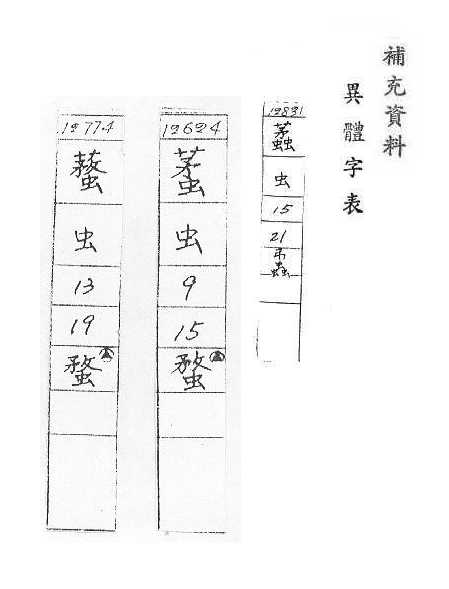 補充資料
異體字表
12831
虫
15
21
12624
虫
9
15
蝥
12774
虫
13
19
蝥